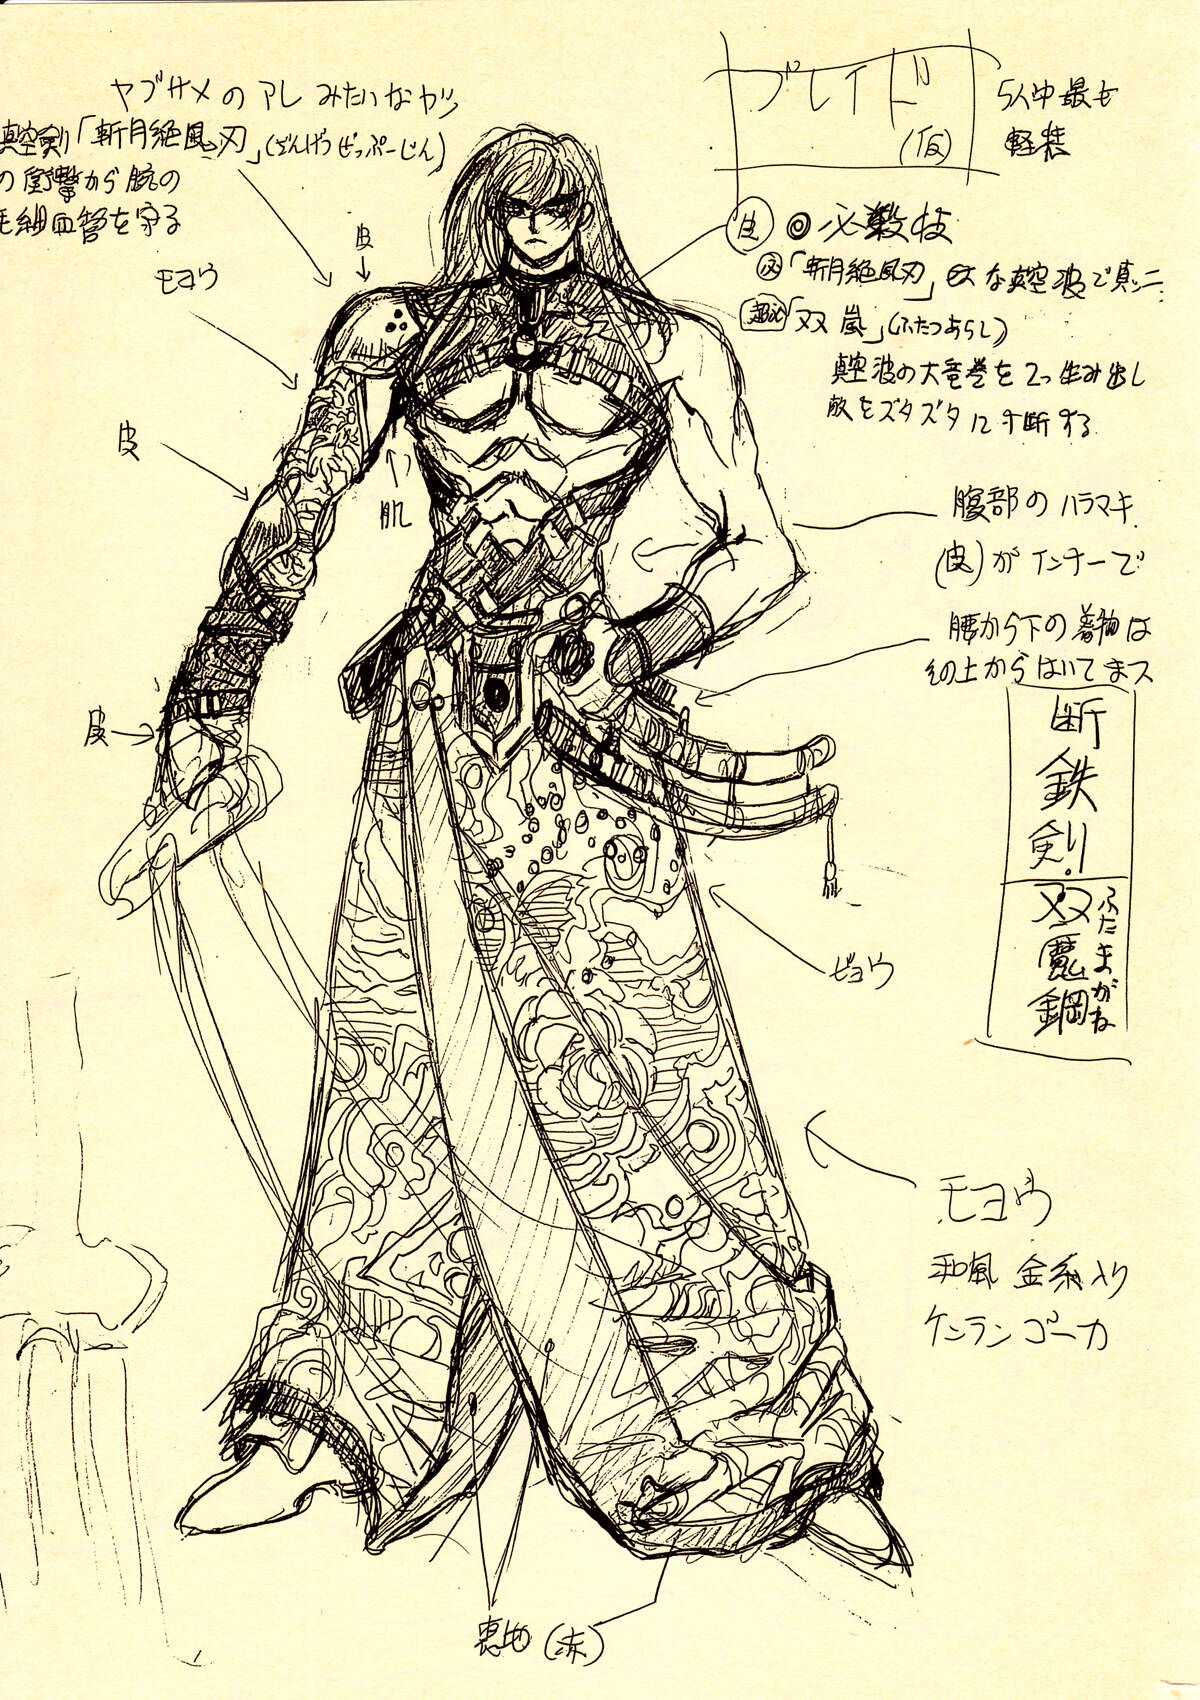 ヤブサメのアレみたいなヤツ
真空剣「斬月絶風刃」(ざんげつぜっぷーじん)
の衝撃から腕の
毛細血管を守る
皮
モヨウ
皮
肌
皮
ブレイド
(仮)
5人中最も
軽装
皮
◎必殺技
「斬月絶風刃」 大な真空波で真ッ二
超必「双嵐」(ふたつあらし)
真空波の大竜巻を2つ生み出し
敵をズタズタに寸断する
腹部のハラマキ
(皮)がインナーで
腰から下の着物は
その上からはいてまス
断鉄剣
双魔鋼
ふたまがね
ビョウ
モヨウ
和風 金糸入り
ケンランゴーカ
裏地(赤)